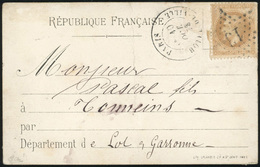 RÉPUBLIQUE FRANÇAISE
PARIS
Monsieur
Pascal fils
à Tonneins
par
Département de Lot & Garonne